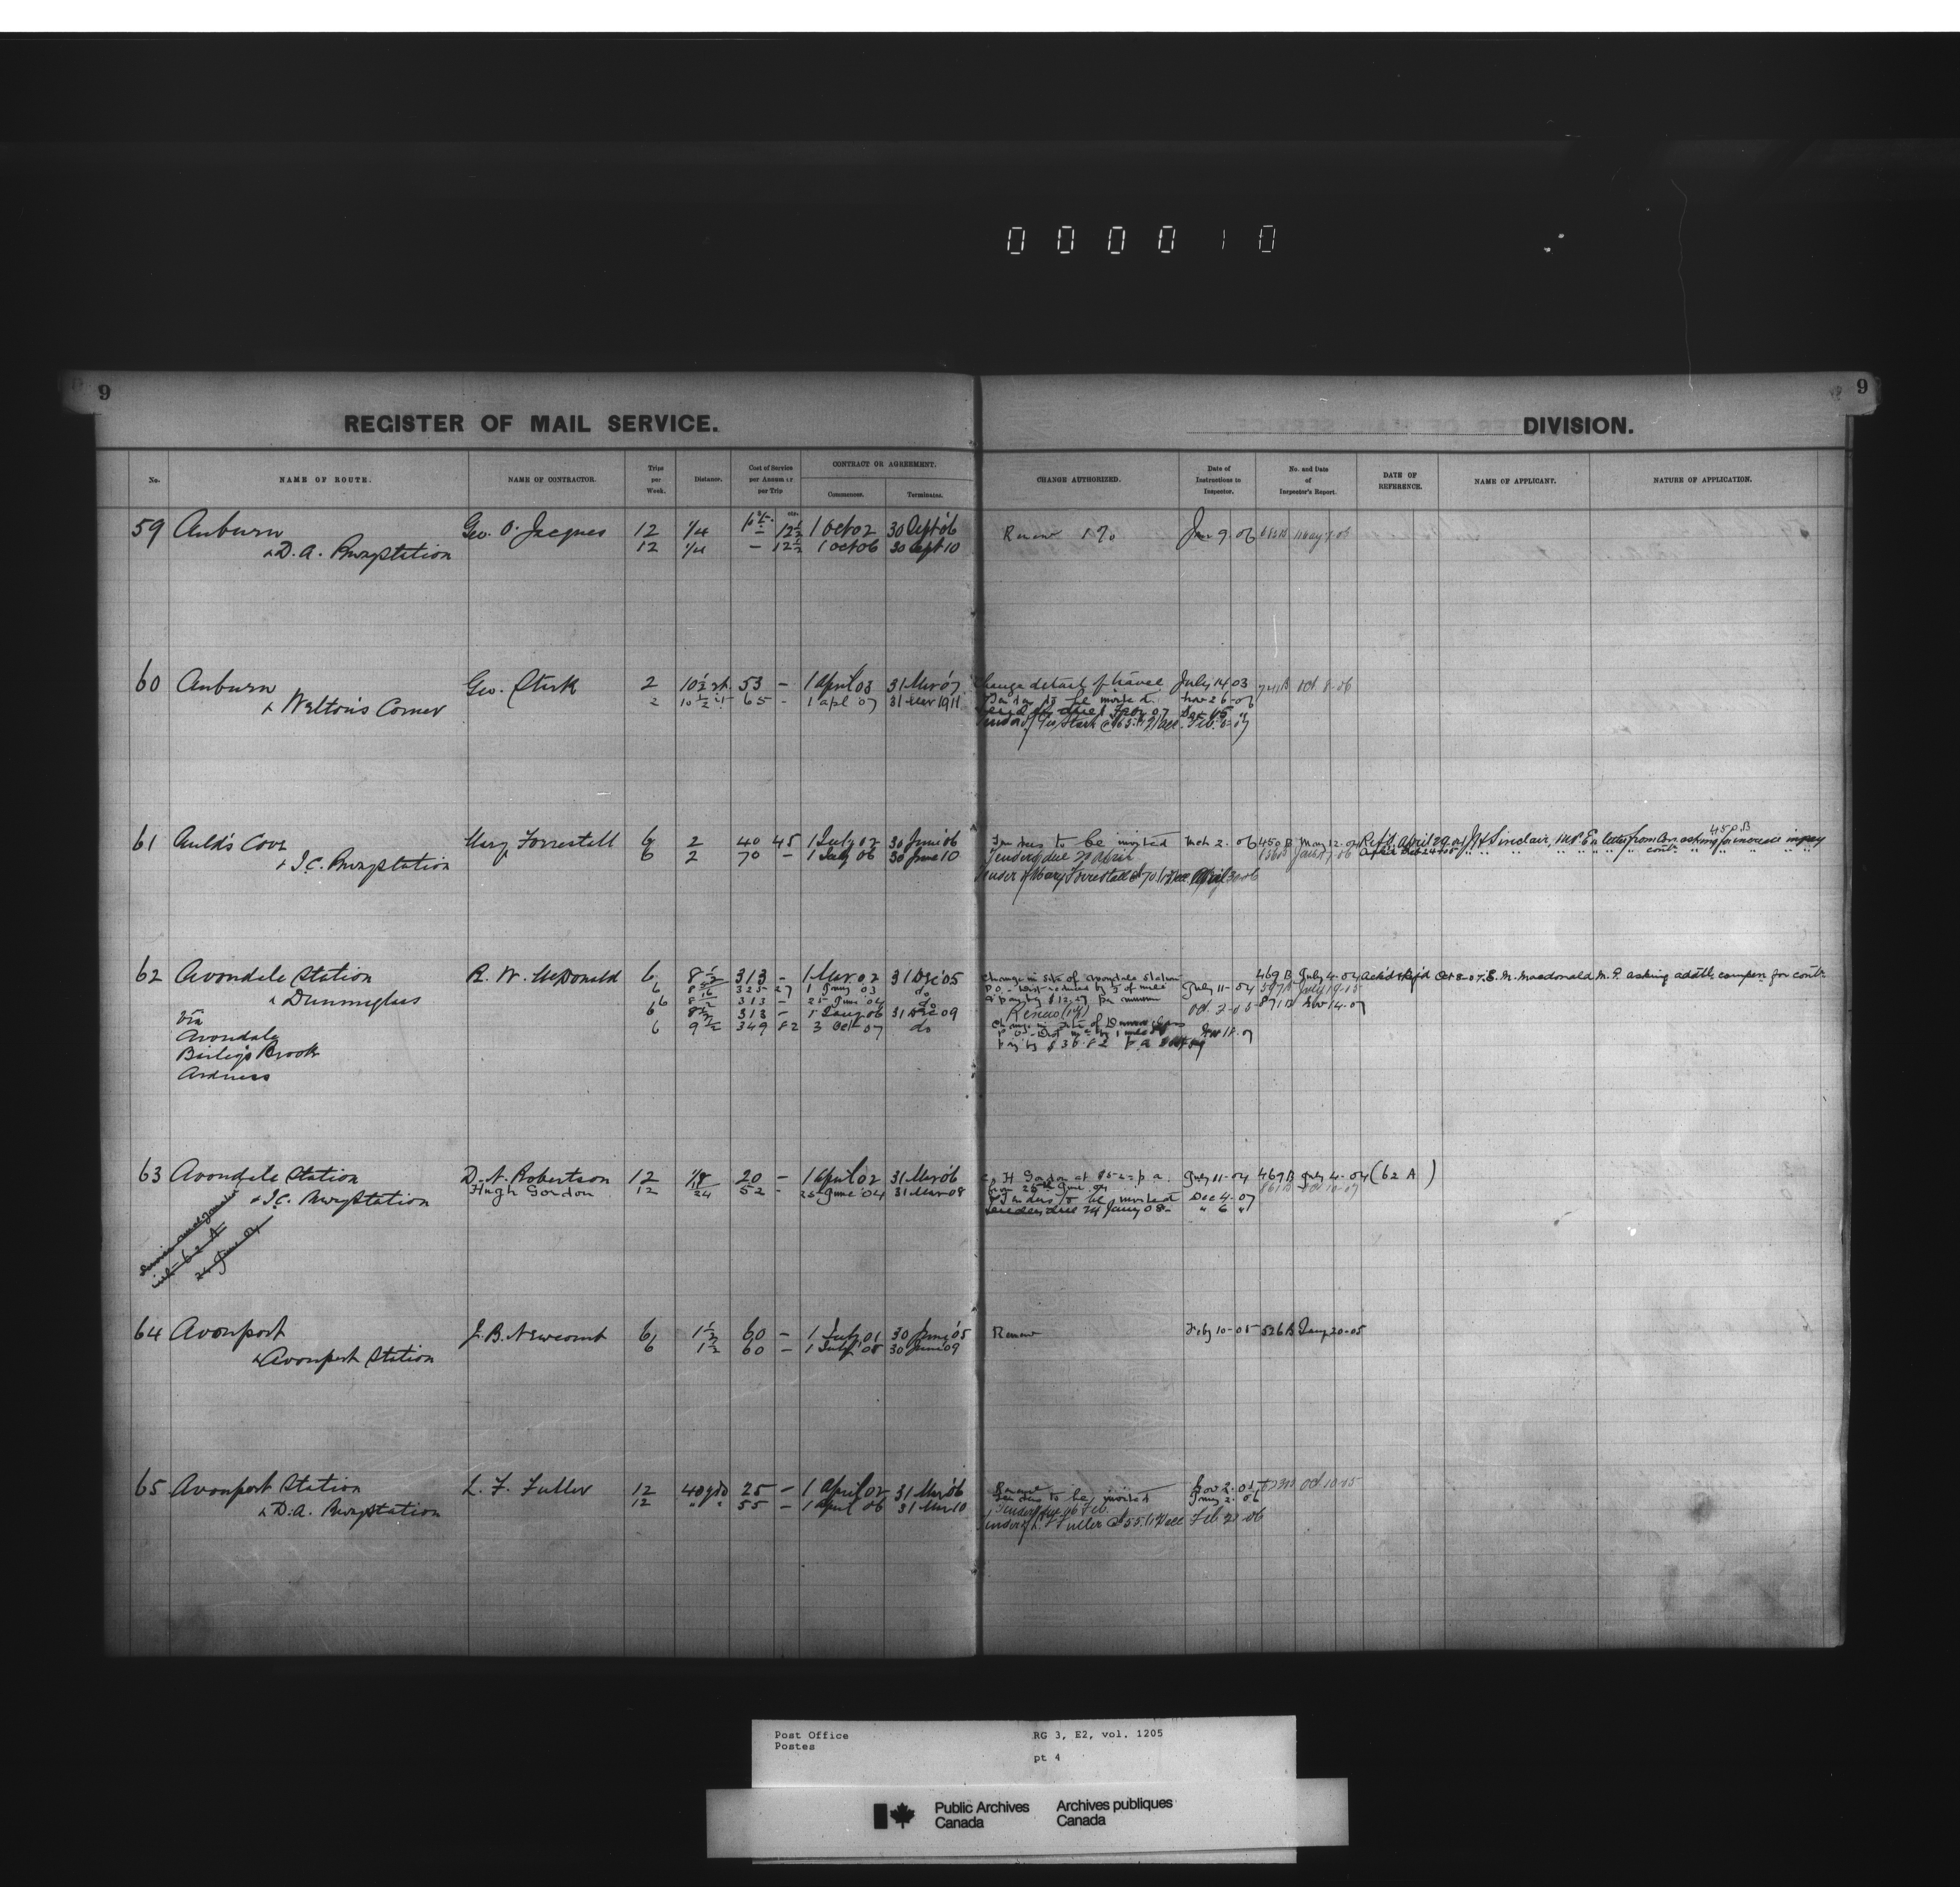 000010
9
9
REGISTER OF MAIL SERVICE.
DIVISION.
No. NAME OF ROUTE. NAME OF CONTRACTOR. Trips per Week. Distance. Cost of Service per Annum or per Trip CONTRACT OR AGREEMENT. Commences. Terminates. CHANGE AUTHORIZED. Date of Instructions to Inspector. No. and Date of Inspector's Report. DATE OF REFERENCE. NAME OF APPLICANT. NATURE OF APPLICATION.
59 Auburn Geo. O. Jacques 12 1/4 12½ 1 Oct 02 30 Sept 06 Renew Jan 9. 06
& D.A. Rwy Station 12 1/4 - 12½ 1 Oct 06 30 Sept 10
60 Auburn Geo. Stark 2 10½ 53 - 1 April 03 31 Mar 07 Change detail of travel July 14 03 741 B Oct 8-06
& Welton's Corner 2 10½ 65 - 1 Apl 07 31 Mar 1911 Tenders to be invited Nov 26-06
61 Auld's Cove Mary Forrestall 6 2 40 45 1 July 02 30 June 06 Tenders to be invited Mch 2. 06 450 B May 12-04 Ref'd April 29 04 J H Sinclair, M.P. En letter from Con. asking for increase in pay
& I.C. Rwy Station 6 2 70 - 1 July 06 30 June 10 Tenders due 20 April
Tender of Mary Forrestall @ 70 April 30 06
62 Avondale Station R. W. McDonald 6 8½ 313 - 1 Mar 02 31 Dec 05 Change in site of Avondale Station 469 B July 4-04 Ack'd & Ref'd Oct 8-07 E. M. Macdonald M.P. asking addtl compen for contr
& Dunmaglass 6 325 27 1 Jany 03 do P.O. - Dist reduced by July 11-04
6 313 - 25 June 04 do pay by $12.27 per annum
Via 8½ 313 - 1 Jany 06 31 Dec 09 Renew Oct 3-05 871 B Nov 14-07
Avondale 6 9½ 349 82 3 Oct 07 do Change in site of Dunmaglass
Bailey's Brook pay by $36.82 Nov 18-07
Ardness
63 Avondale Station D. A. Robertson 12 1/8 20 - 1 April 02 31 Mar 06 H Gordon at $52 p a July 11-04 469 B July 4-04 (62 A)
& I.C. Rwy Station Hugh Gordon 12 52 - 25 June 04 31 Mar 08 from 25th June 04
Tenders to be invited Dec 4-07
Tenders due 24 Jany 08 " 6 "
Service amalgamated
with 62 A
24 June 04
64 Avonport J. B. Newcomb 6 1½ 60 - 1 July 01 30 June 05 Renew Feby 10-05 526 B Jany 20-05
& Avonport Station 6 1½ 60 - 1 July 05 30 June 09
65 Avonport Station L. F. Fuller 12 40 yds 25 - 1 April 02 31 Mar 06 Renew Nov 2. 05 Oct 10-05
& D.A. Rwy Station 12 " " 55 - 1 April 06 31 Mar 10 Tenders to be invited Jany 2. 06
Tenders due 16 Feb.
Tender of L. F. Fuller @ $55. Feb. 21-06
Post Office RG 3, E2, vol. 1205
Postes
pt 4
Public Archives Archives publiques
Canada Canada